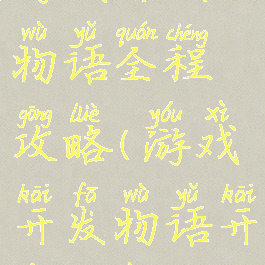 wù yǔ quán chéng
物语全程
gōng lüè yóu xì
攻略(游戏
kāi fā wù yǔ kāi
开发物语开